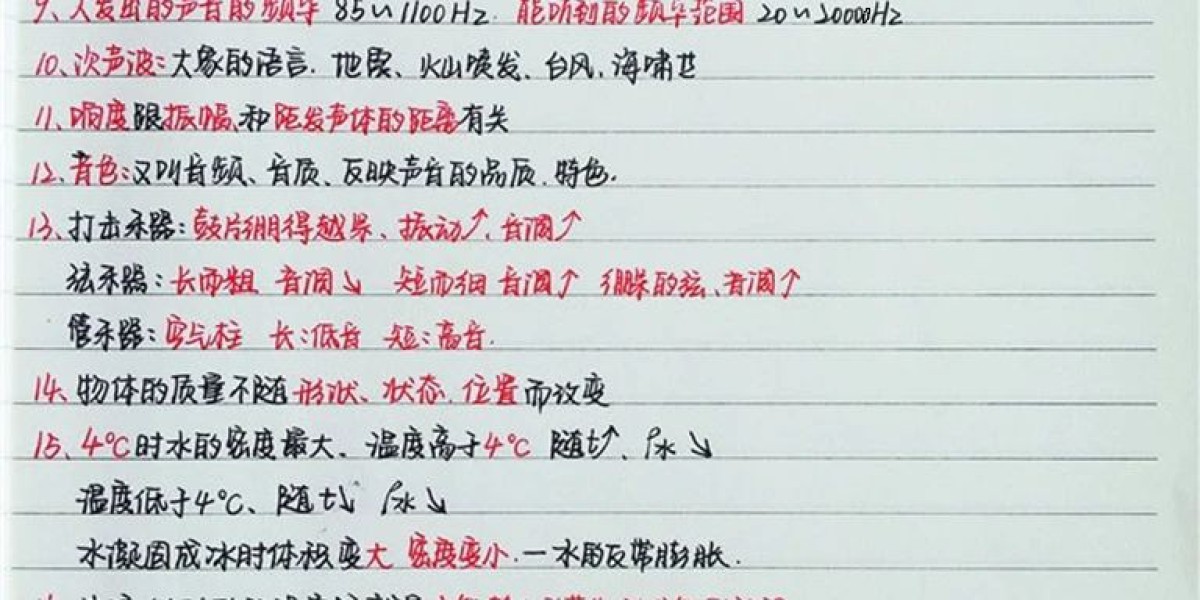 9、人发出的声音的频率 85~1100Hz. 能听到的频率范围 20~20000Hz
10、次声波:大象的语言. 地震、火山喷发、台风、海啸
11、响度跟振幅、和距发声体的距离有关
12、音色:又叫音频、音质、反映声音的品质、特色.
13、打击乐器:鼓片绷得越紧、振动↑、音调↑
弦乐器:长而粗 音调↓ 短而细 音调↑ 绷紧的弦、音调↑
管乐器:空气柱 长:低音 短:高音.
14、物体的质量不随形状、状态、位置而改变
15、4℃时水的密度最大、温度高于4℃ 随t↑、ρ水↓
温度低于4℃、随t↓ ρ水↓
水凝固成冰时体积变大 密度变小.一水的反常膨胀.